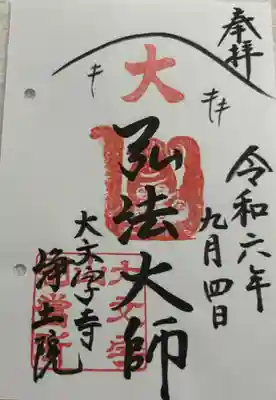 奉拝
令和六年
九月四日
大
弘法大師
大文字寺
浄土院